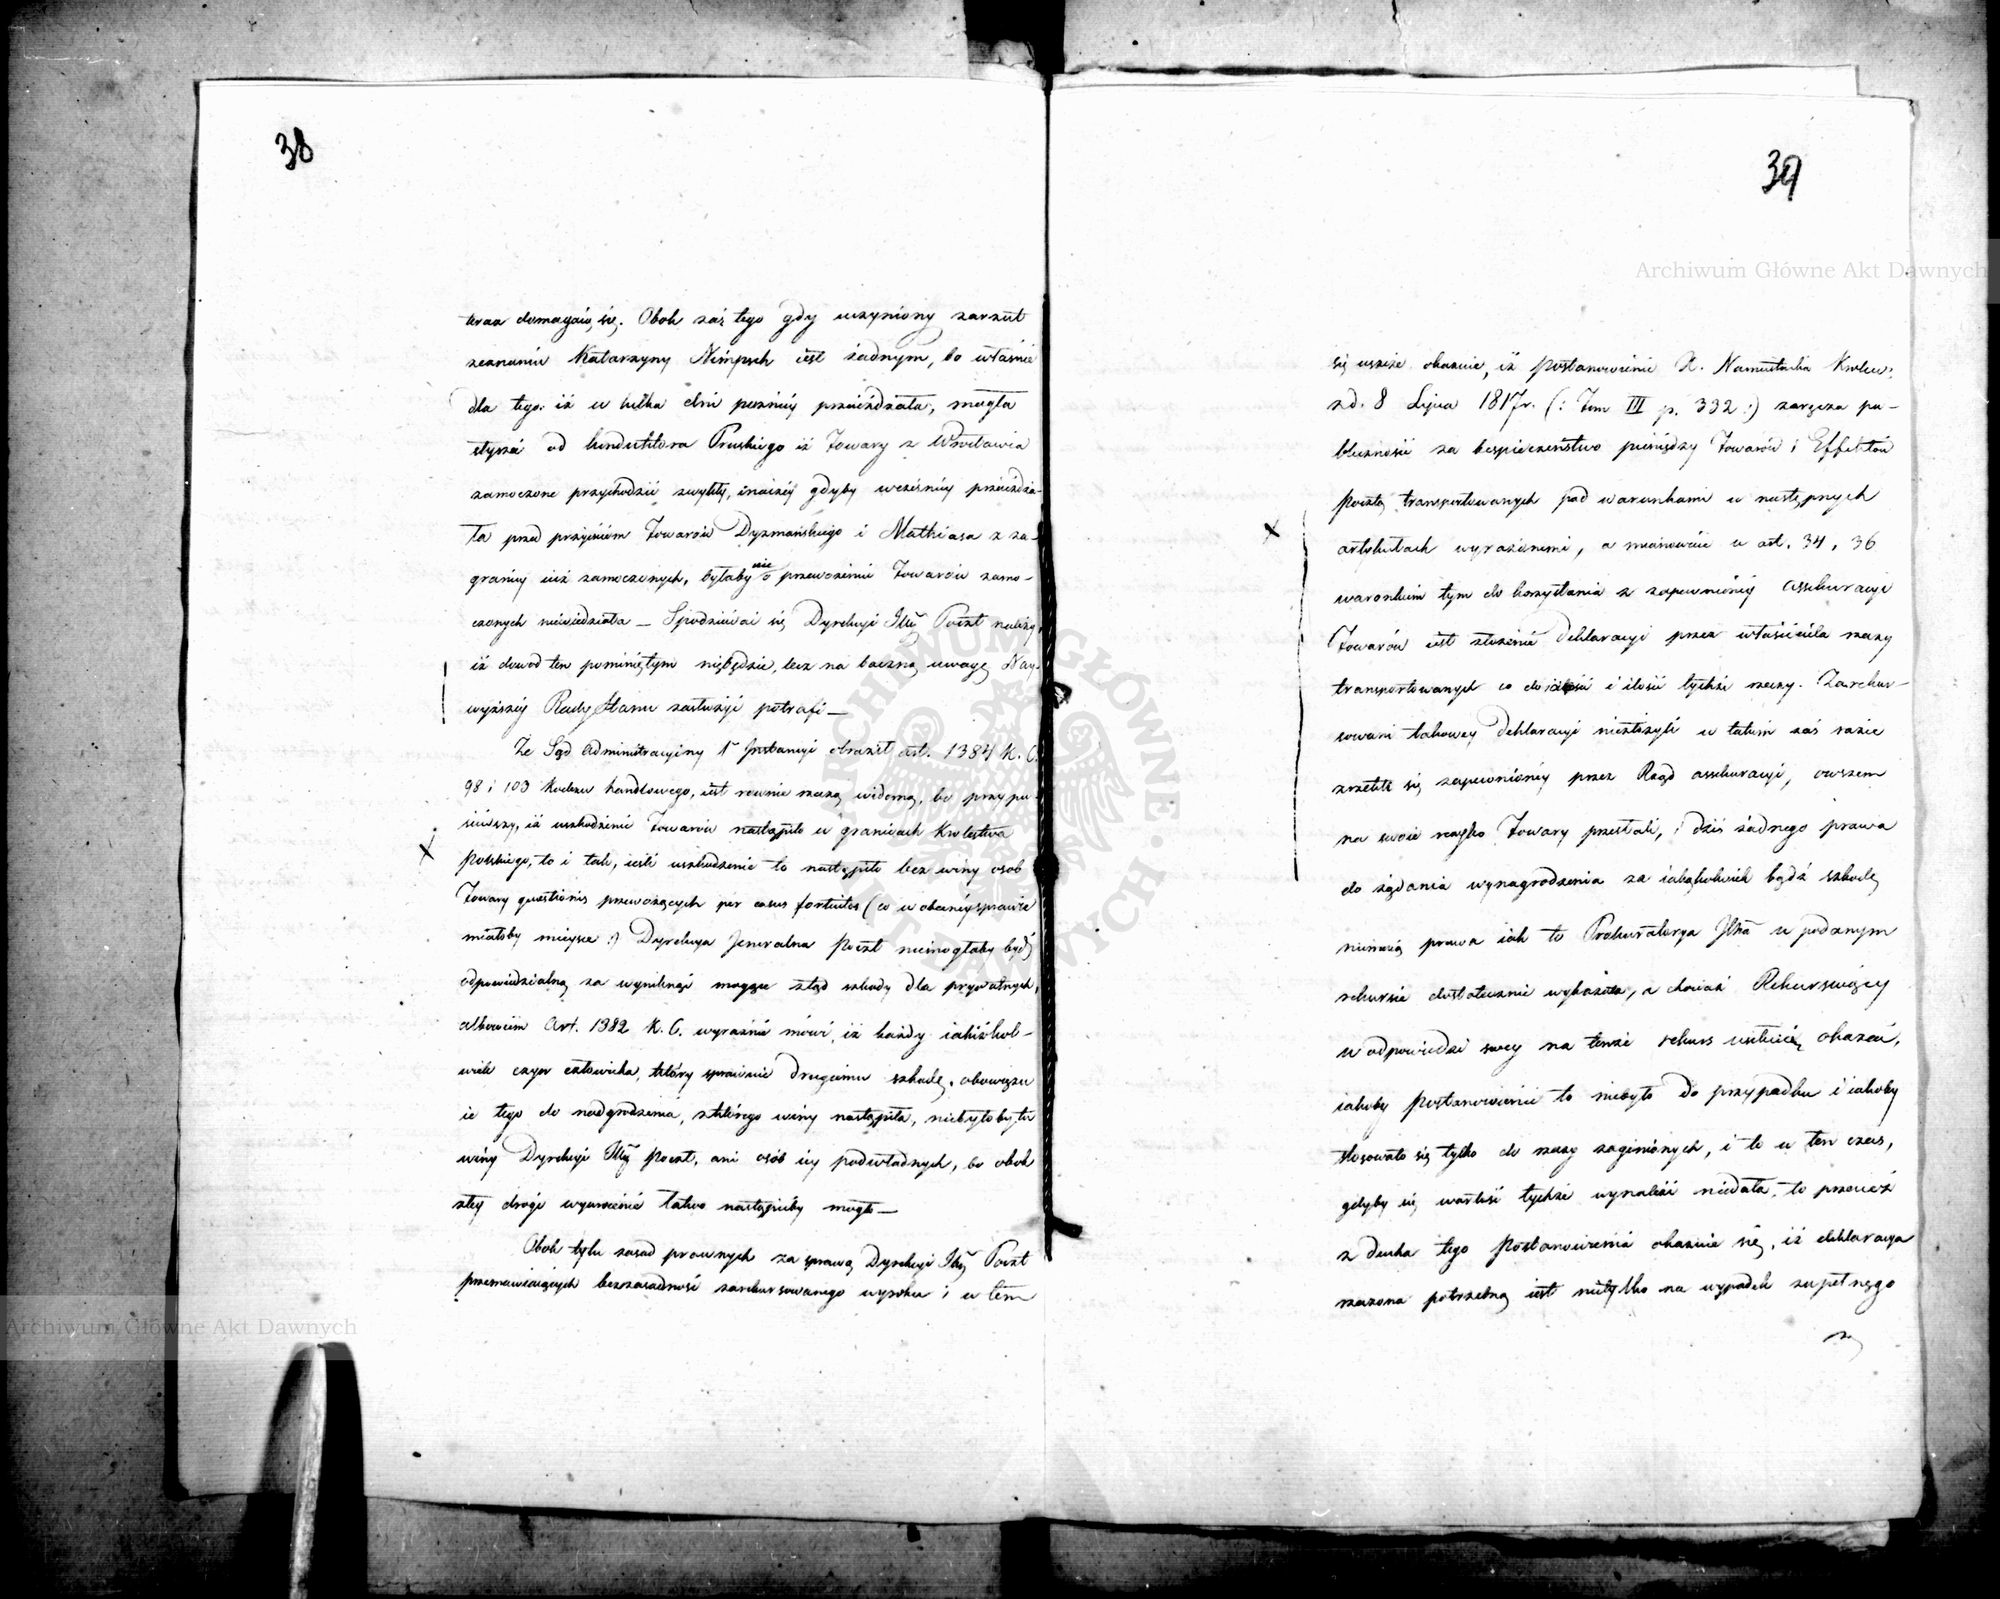 38
teraz domagaią się. Obok zaś tego gdy uczyniony zarzut
zeznaniu Katarzyny Nimpsch iest żadnym, bo właśnie
dla tego iż w kilka dni pozniéy przeieżdżała, mogła
słyszéć od konduktora Pruskiego iż Towary z Wrocławia
zamoczone przychodzić zwykły, inaczéy gdyby wcześniéy przeieżdża-
ła przed przyiściem Towarów Dyzmańskiego i Mathiasa z za-
granicy iuż zamoczonych, byłaby o przewozeniu Towarów zamo-
czonych niewiedziała — Spodziewać się Dyrekcyi Poczt należy,
iż dowod ten pominiętym niebędzie, lecz na baczną uwagę Nay-
wyższéy Rady Stanu zasłużyć potrafi —
Że Sąd Administracyiny 1 Instancyi obraził art. 1384 K. C.
98 i 103 Kodexu handlowego, iest rownie rzeczą widomą, bo przypu-
ściwszy, iż uszkodzenie Towarów nastąpiło w granicach Krolestwa
Polskiego, to i tak, ieśli uszkodzenie to nastąpiło bez winy osob
Towary quaestionis przewożących per casus fortuitos (co w obecnéy sprawie
miałoby mieysce :) Dyrekcya Jeneralna Poczt niemogłaby bydź
odpowiedzialną za wyniknąć mogące ztąd szkody dla prywatnych,
albowiem Art. 1382 K. C. wyraźnie mówi, iż każdy iakiżkol-
wiek czyn człowieka, który sprawuie drugiemu szkodę, obowięzu
ie tego do nadgrodzenia, z którego winy nastąpiła, niebyłoby tu
winy Dyrekcyi Poczt, ani osób iéy podwładnych, bo obok
złéy drogi wywrócenie łatwo nastąpićby mogło —
Obok tylu zasad prawnych za sprawą Dyrekcyi Poczt
przemawiaiących bezzasadność zarekursowanego wyroku i w tém
39
się ieszcze okazuie, iż Postanowienie X. Namiestnika Krolew:
z d. 8 Lipca 1817 r. (: Tom III p. 332 :) zaręcza pu-
bliczności za bezpieczeństwo pieniędzy Towarów i Effektów
Pocztą transportowanych pod warunkami w następnych
artykułach wyrażonemi, a mianowicie w art. 34, 36
warunkiem tym do korzystania z zapewnionéy assekuracyi
Towarów iest złożenie Deklaracyi przez właściciela rzeczy
transportowanych co do iakości i ilości tychże rzeczy. Zarekur-
sowani takowey Deklaracyi niezłożyli w takim zaś razie
zrzekli się zapewnionéy przez Rząd assekuracyi, owszem
na swoie ryzyko Towary przesłali, i dziś żadnego prawa
do żądania wynagrodzenia za iakąkolwiek bądź szkodę
niemaią prawa iak to Prokuratorya w podanym
rekursie dostatecznie wykazała, a chociaż Rekursuiący
w odpowiedzi swey na tenże rekurs usiłuią okazać,
iakoby Postanowienie to niebyło do przypadku i iakoby
stosowało się tylko do rzeczy zaginionych, i to w ten czas,
gdyby się wartość tychże wynaleść niedała, to przecież
z Ducha tego Postanowienia okazuie się, iż deklaracya
rzeczona potrzebną iest nietylko na wypadek zupełnego
Archiwum Główne Akt Dawnych
Archiwum Główne Akt Dawnych
ARCHIWUM GŁÓWNE AKT DAWNYCH